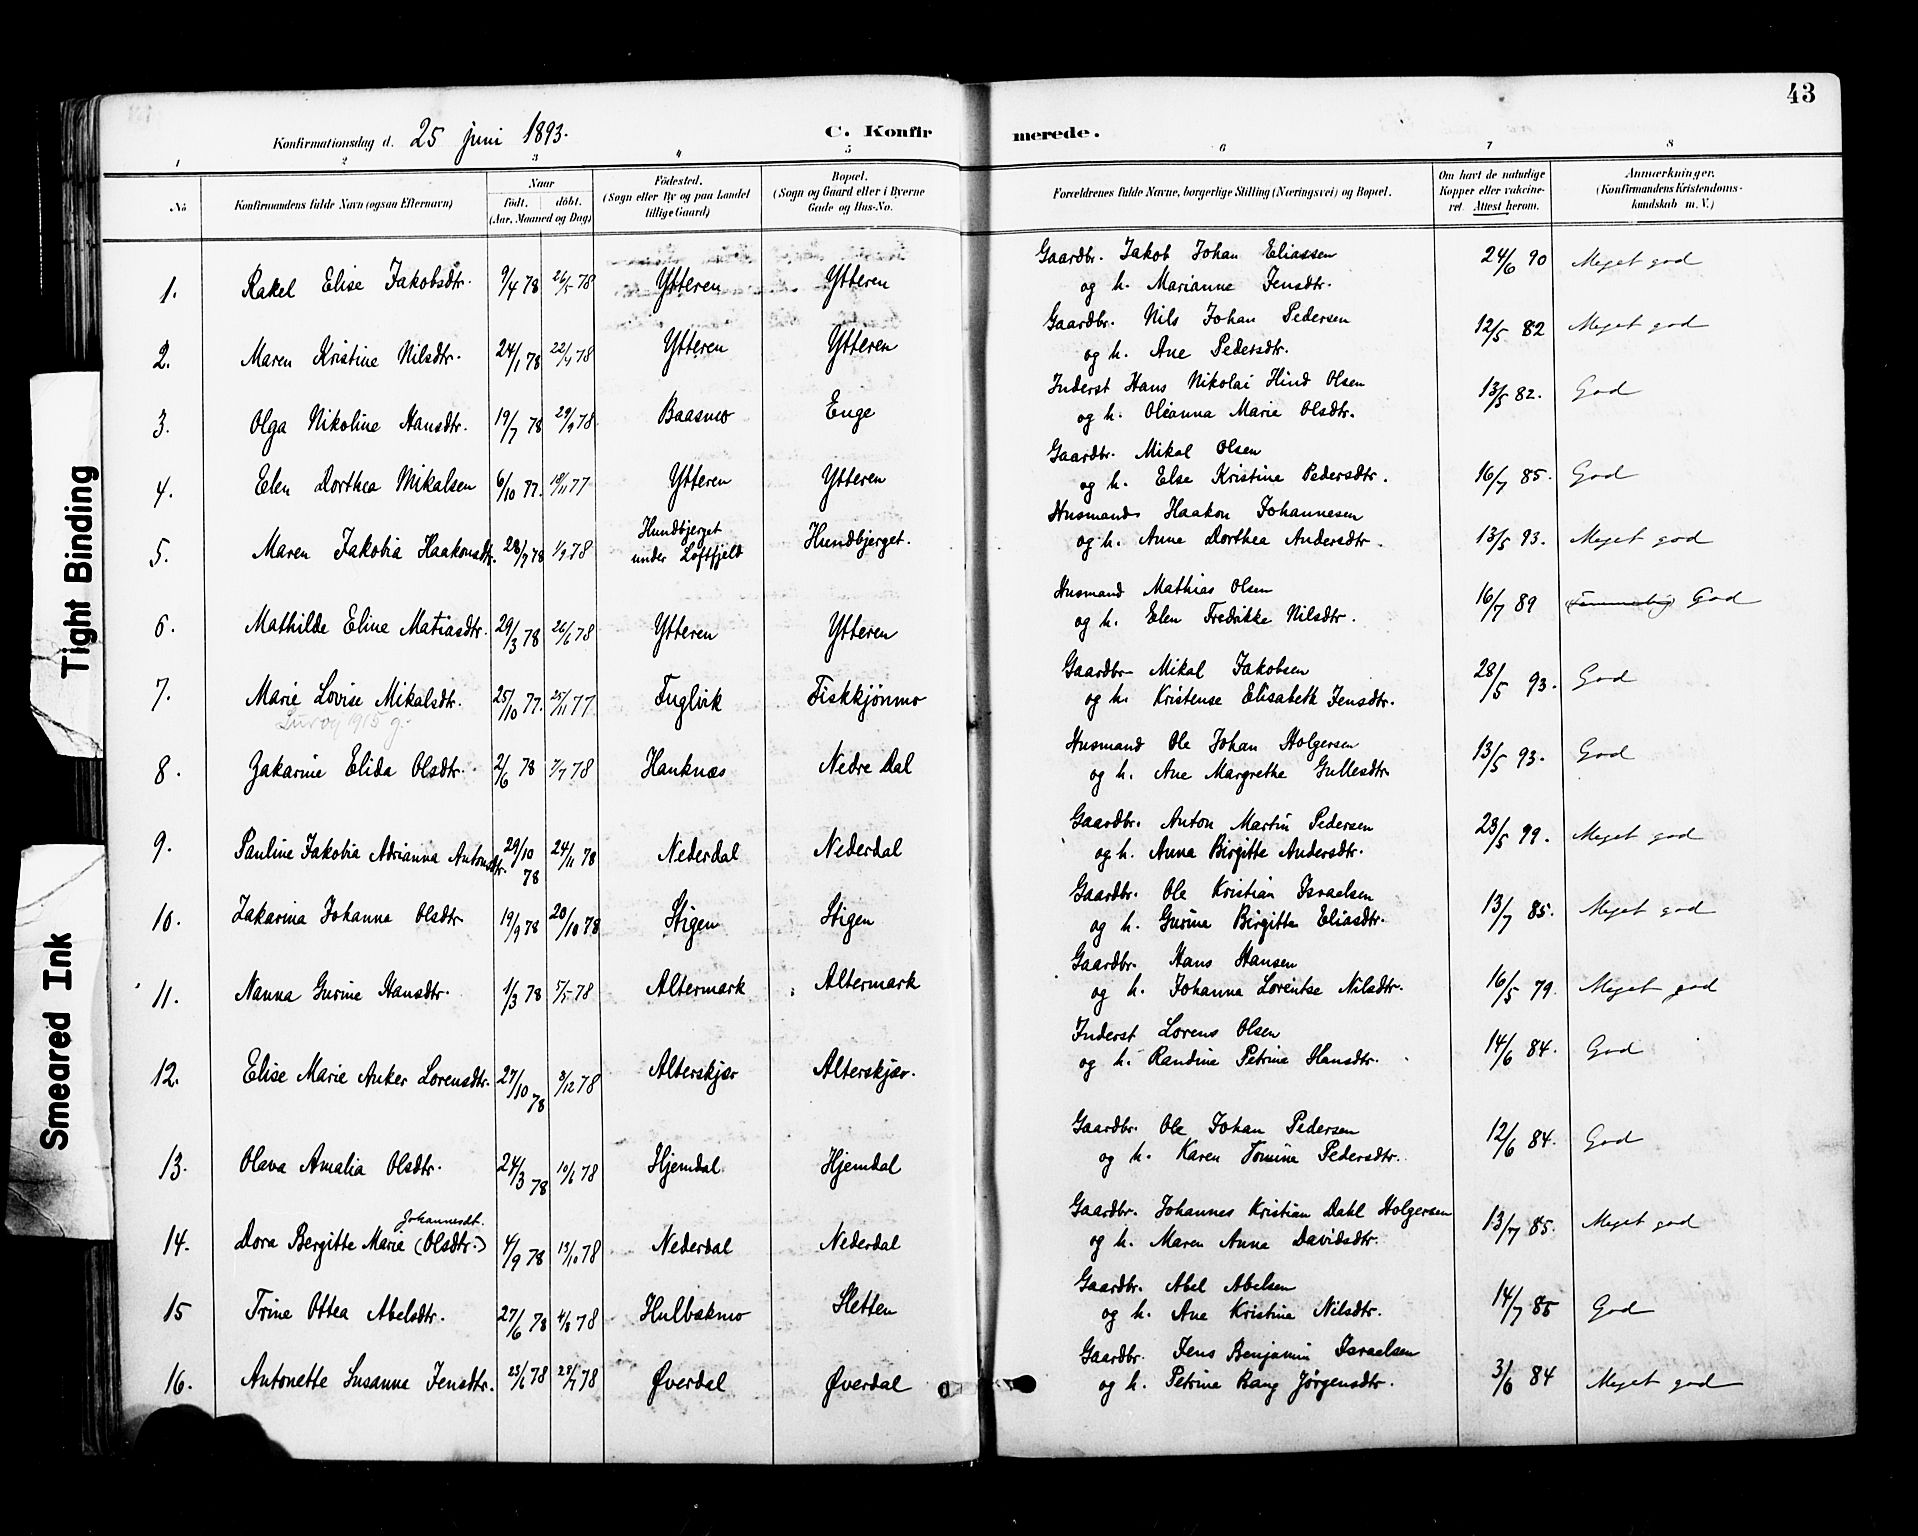 43
Konfirmationsdag d. 25 juni 1893.
C. Konfirmerede.
1 2 3 4 5 6 7 8
No
Konfirmandens fulde Navn (ogsaa Efternavn)
Naar
født. døbt.
(Aar, Maaned og Dag)
Fødested.
(Sogn eller By og paa Landet
tillige Gaard)
Bopæl.
(Sogn og Gaard eller i Byerne
Gade og Hus-No.
Forældrenes fulde Navne, borgerlige Stilling (Næringsvei) og Bopæl.
Om havt de naturlige
Kopper eller vakcine-
ret. Attest herom.
Anmerkninger.
(Konfirmandens Kristendoms-
kundskab m. V.)
Gaardbr. Jakob Johan Eliassen
1. Rakel Elise Jakobsdtr. 9/4 78 26/5 78 Ytteren Ytteren og h. Marianne Jensdtr. 24/6 90 Meget god
Gaardbr. Nils Johan Pedersen
2. Maren Kristine Nilsdtr. 24/1 78 22/4 78 Ytteren Ytteren og h. Ane Pedersdtr. 12/5 82 Meget god
Inderst Hans Nikolai Hind Olsen
3. Olga Nikoline Hansdtr. 19/7 78 29/9 78 Baasmo Enge og h. Oleanna Marie Olsdtr. 13/5 82. God
Gaardbr. Mikal Olsen
4. Elen Dorthea Mikalsen 6/10 77. 18/11 77 Ytteren Ytteren og h. Else Kristine Pedersdtr. 16/7 85. God
Husmand Haakon Johannesen
5. Maren Jakobia Haakonsdtr. 28/7 78 1/9 78 Hundbjerget under Løftfjeld Hundbjerget. og h. Anne Dorthea Andersdtr. 13/5 93. Meget god
Husmand Mathias Olsen
6. Mathilde Eline Matiasdtr. 29/3 78 26/6 78 Ytteren Ytteren og h. Elen Fredrikke Nilsdtr. 16/7 89 Temmelig God
Gaardbr. Mikal Jakobsen
7. Marie Lovise Mikalsdtr. 25/10 77. 25/11 77 Fuglvik Fiskkjønmo og h. Kristense Elisabeth Jensdtr. 28/5 93. God
Lurøy 1915 g.
Husmand Ole Johan Holgersen
8. Zakarine Elida Olsdtr. 2/6 78 7/7 78 Hauknæs Nedre Dal og h. Ane Margrethe Gullesdtr. 13/5 93. God
Gaardbr. Anton Martin Pedersen
9. Pauline Jakobia Adrianna Antonsdtr. 29/10 78 24/11 78 Nederdal Nederdal og h. Anna Birgitte Andersdtr. 28/5 99. Meget god
Gaardbr. Ole Kristian Israelsen
10. Zakarina Johanna Olsdtr 19/9 78 20/10 78 Stigen Stigen og h. Gurina Birgitta Eliasdtr. 13/7 85. Meget god
Gaardbr. Hans Hansen
11. Nanna Gurine Hansdtr. 1/3 78 7/5 78 Altermark Altermark og h. Johanna Lorentse Nilsdtr. 16/5 79. Meget god
Inderst Lorens Olsen
12. Elise Marie Anker Lorensdtr. 27/10 78 3/12 78 Alterskjær Alterskjær. og h. Randine Petrine Hansdtr. 14/6 84. God
Gaardbr. Ole Johan Pedersen
13. Olava Amalia Olsdtr. 24/3 78 10/6 78 Hjemdal Hjemdal og h. Karen Tomine Pedersdtr. 12/6 84. God
Gaardbr. Johannes Kristian Dahl Holgersen
Johannesdt.
14. Dora Bergitte Marie (Olsdtr.) 4/9 78 13/10 78 Nederdal Nederdal og h. Maren Anna Davidsdtr. 13/7 85. Meget god
Gaardbr. Abel Abelsen
15 Trine Ottea Abelsdtr. 27/6 78 4/8 78 Hulbækmo Sletten og h. Ane Kristina Nilsdtr. 14/7 85 God
Gaardbr. Jens Benjamin Israelsen
16. Antonette Susanna Jensdtr. 23/6 78 28/7 78 Øverdal Øverdal og h. Petrine Bang Jørgensdtr. 3/6 84 Meget god
Tight Binding
Smeared Ink